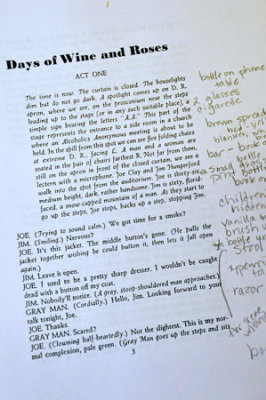 Days of Wine and Roses
ACT ONE
The time is now. The curtain is closed. The houselights
dim but do not go dark. A spotlight comes up on D. R.
apron, where we see, on the proscenium near the steps
leading up to the stage (or in any such suitable place), a
simple sign bearing the letters "A.A." This part of the
stage represents the entrance to a side room in a church
where an Alcoholics Anonymous meeting is about to be
held. In the spill from this spot we can see five folding chairs
at extreme D. R., facing L. A man and a woman are
seated in the pair of chairs farthest R. Not far from them,
still on the apron in front of the closed curtain, we see a
lectern with a microphone. Joe Clay and Jim Hungerford
walk into the spot from the auditorium. Joe is thirty-six,
medium height, dark, rather handsome. Jim is sixty, florid-
faced, a snow capped mountain of a man. As they start to
go up the steps, Joe stops, backs up a step, stopping Jim.
JOE. (Trying to sound calm.) We got time for a smoke?
JIM. (Smiling.) Nervous?
JOE. It's this jacket. The middle button's gone. (He pulls the
jacket together wishing he could button it, then lets it fall open
again.)
JIM. Leave it open.
JOE. I used to be a pretty sharp dresser. I wouldn't be caught
dead with a button off my coat.
JIM. Nobody'll notice. (A gray, stoop-shouldered man approaches.)
GRAY MAN. (Cordially.) Hello, Jim. Looking forward to your
talk tonight, Joe.
JOE. Thanks.
GRAY MAN. Scared?
JOE. (Clowning half-heartedly.) Not the slightest. This is my nor-
mal complexion, pale green. (Gray Man goes up the steps and sits
3
bottle on phone
table
2 glasses
cigarette
brown spread
bed
bar
small bottle
children
hidden
vanilla
brush
bottle
razor